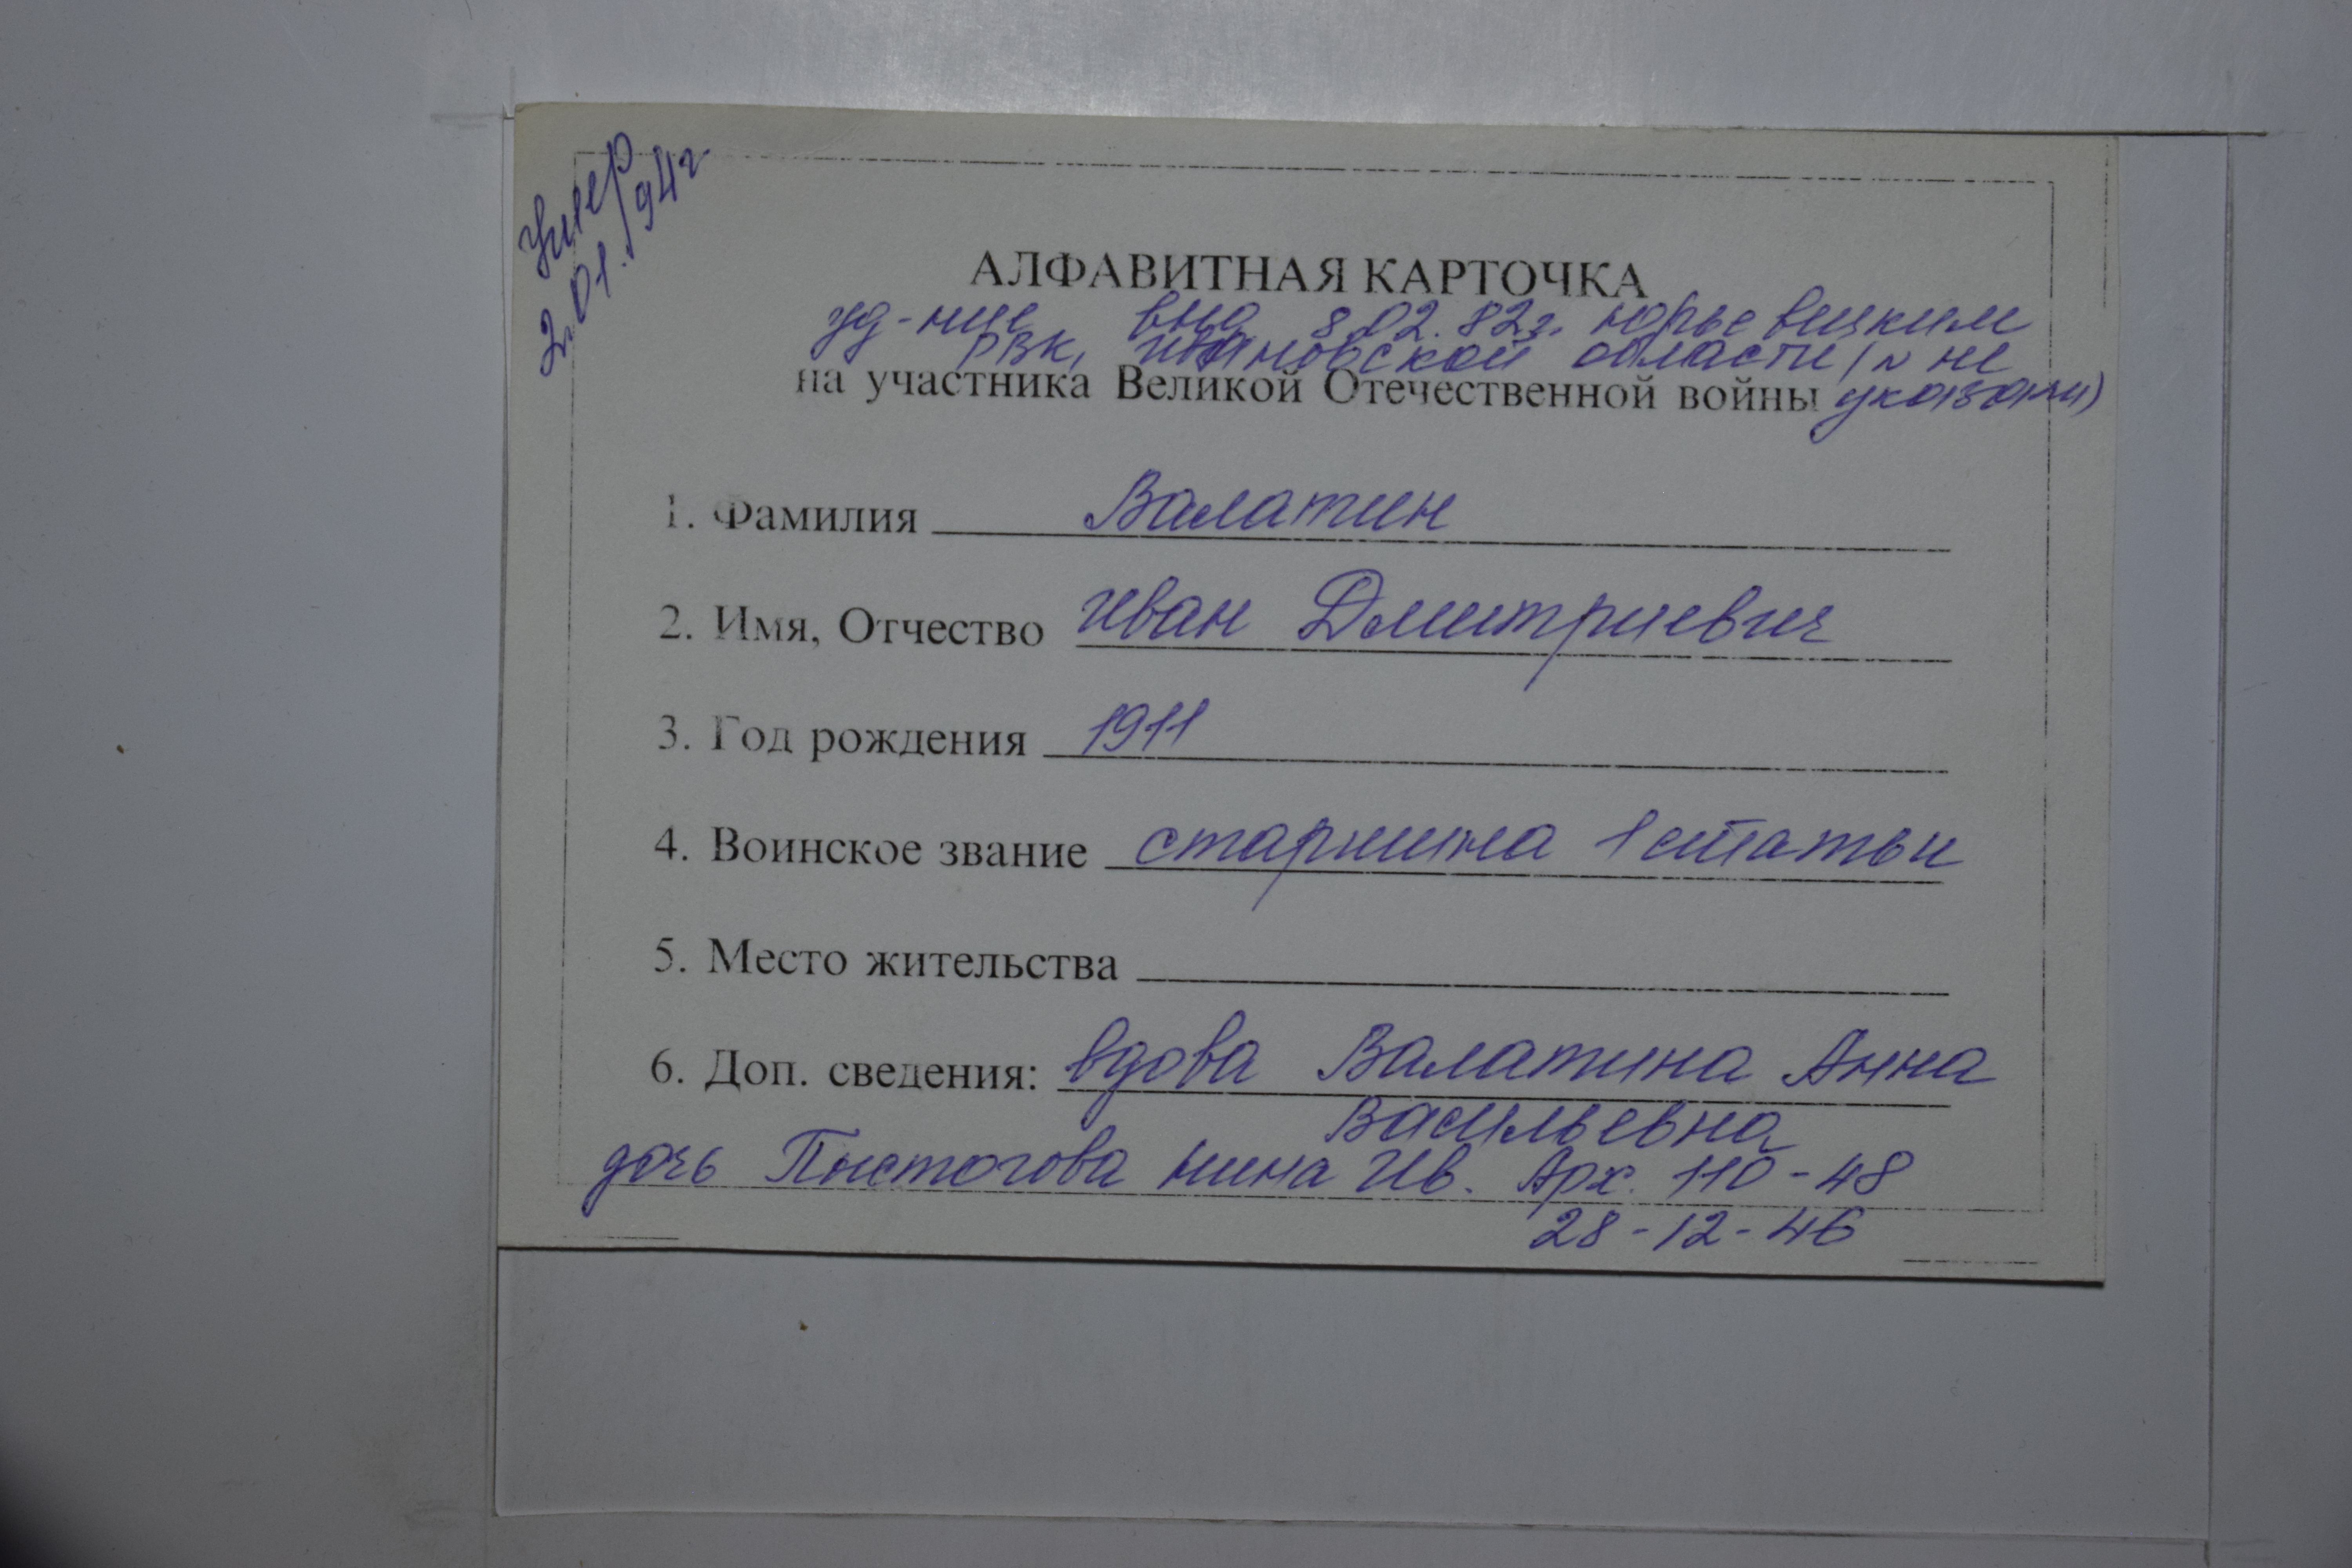 Умер
2.01.94г
АЛФАВИТНАЯ КАРТОЧКА
уд-ние выд 8.02.82г. Юрьевецким
РВК, Ивановской области (№ не
на участника Великой Отечественной войны указан)
1. Фамилия Валатин
2. Имя, Отчество Иван Дмитриевич
3. Год рождения 1911
4. Воинское звание старшина 1 статьи
5. Место жительства
6. Доп. сведения: вдова Валатина Анна
Васильевна
дочь Пистогова Нина Ив. Арх. 110-48
28-12-46